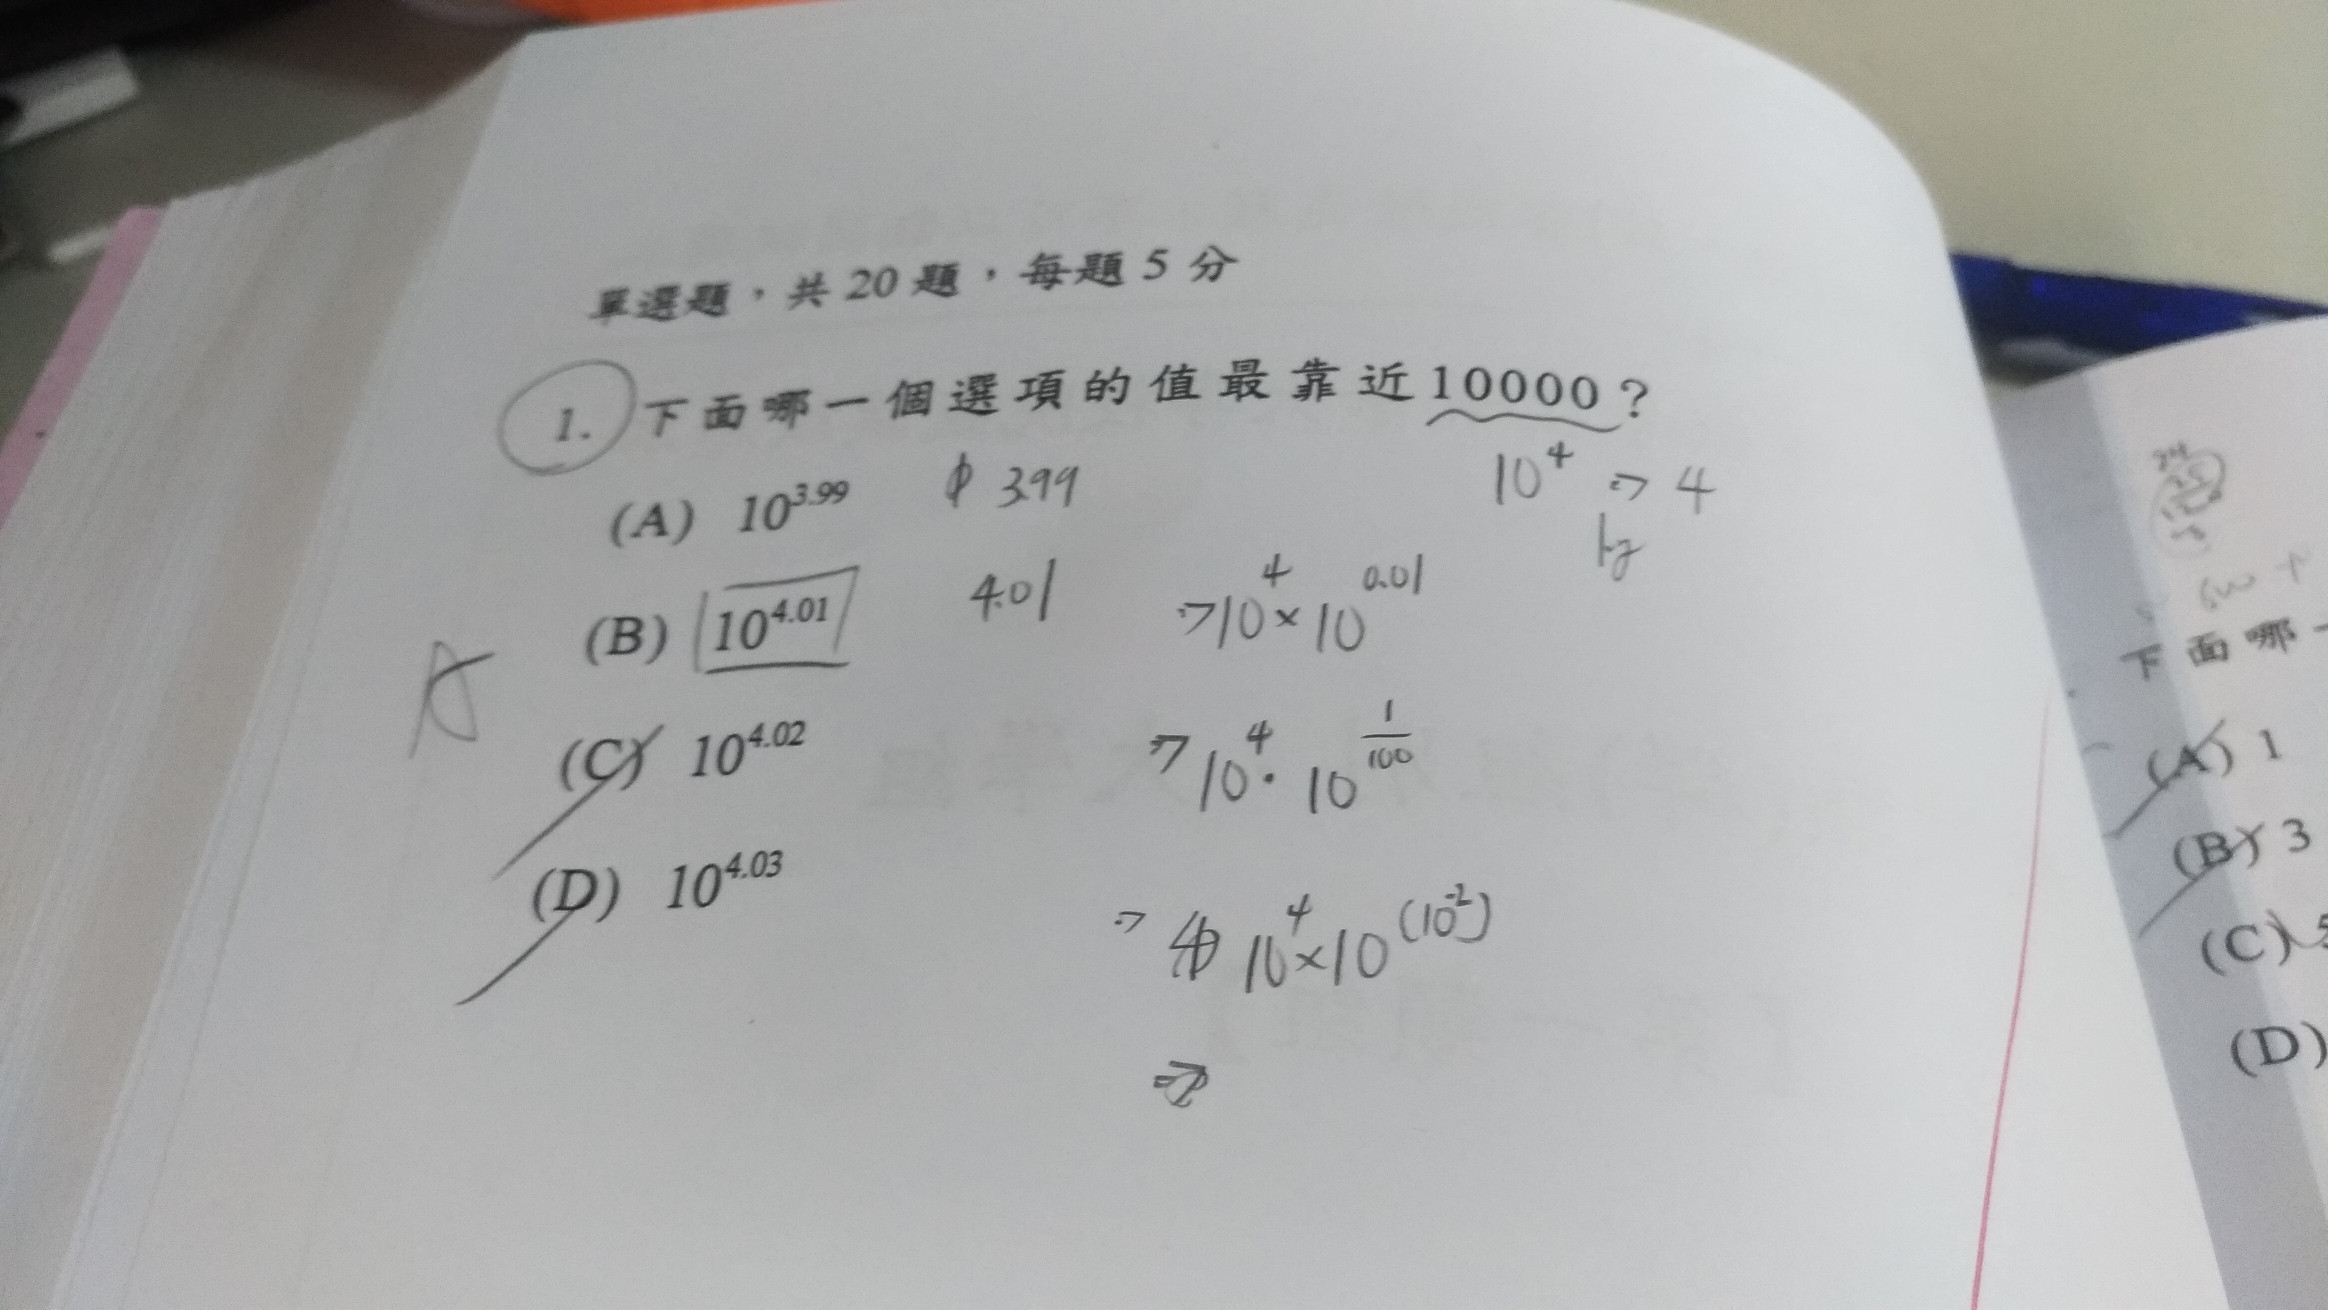 單選題，共 20 題，每題 5 分
1. 下面哪一個選項的值最靠近10000？
10⁴ => 4
(A) 10^3.99 3.99
log
(B) 10^4.01 4.01 => 10⁴ × 10^0.01
A
(C) 10^4.02 => 10⁴ · 10^(1/100)
(D) 10^4.03 => 10⁴ × 10^(10⁻²)
=>
下面哪一
(A) 1
(B) 3
(C)
(D)